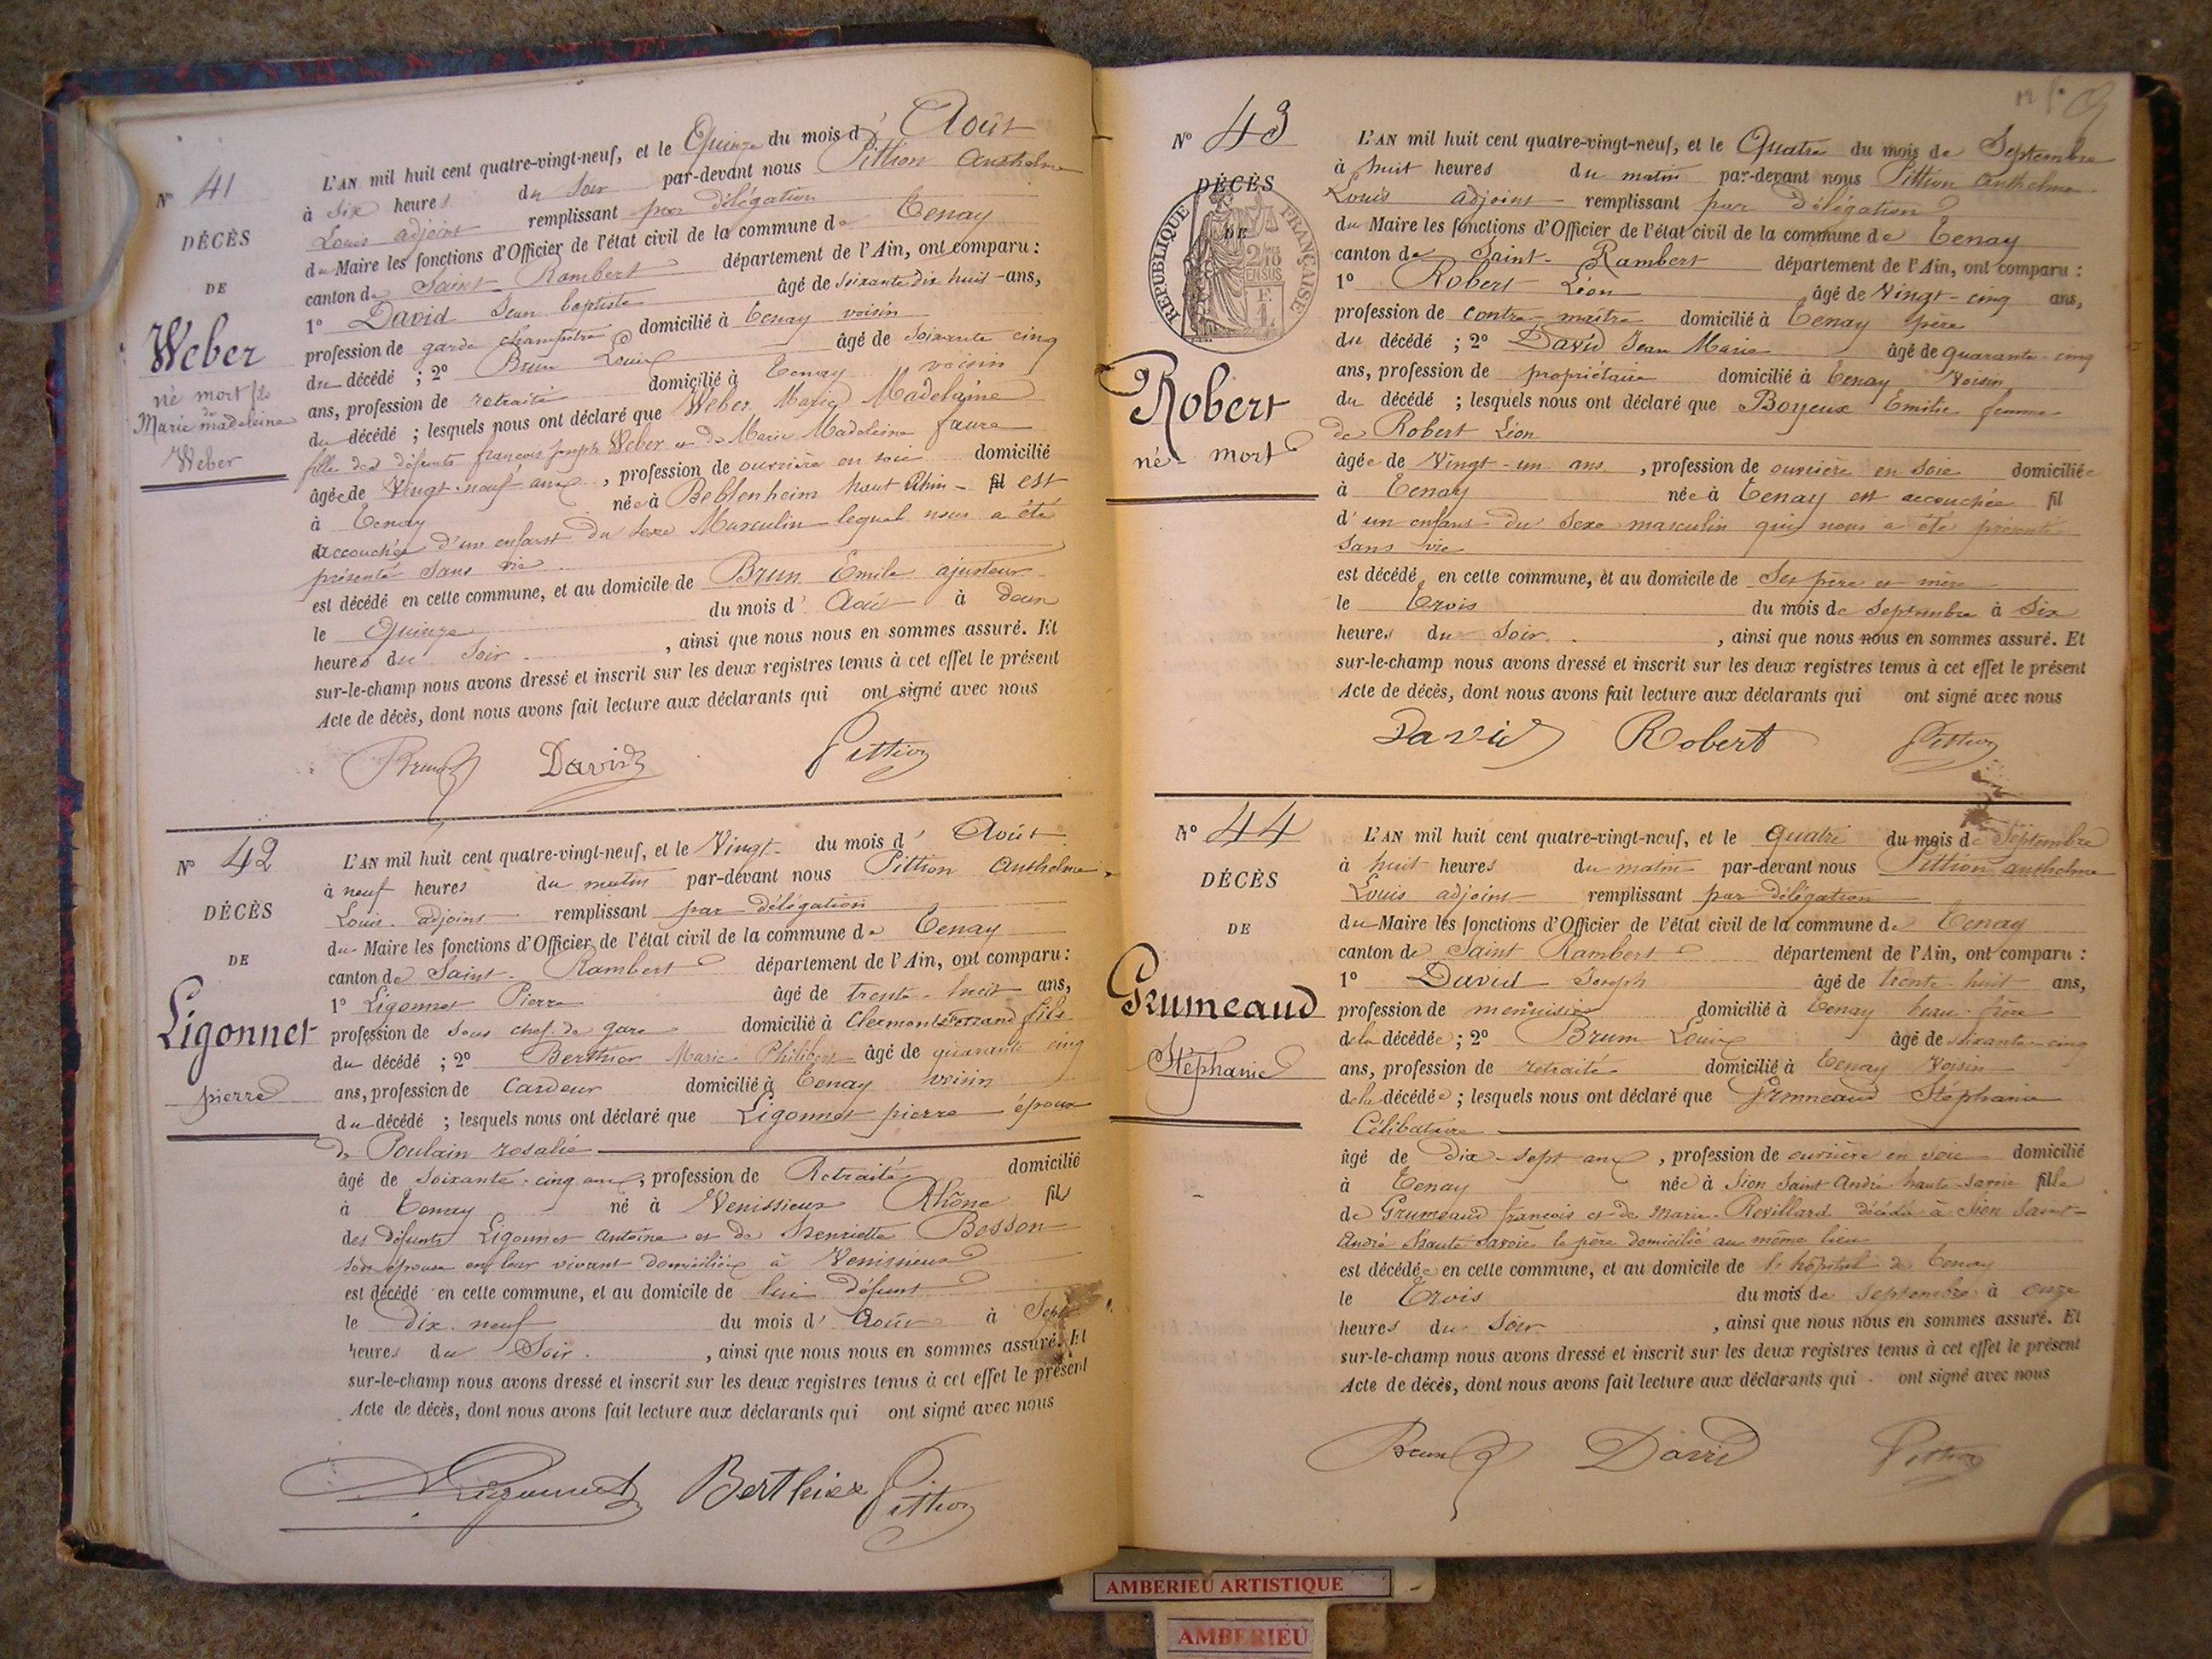 N° 41
DÉCÈS
DE
Weber
né mort fils
de
Marie madeleine
Weber
L'AN mil huit cent quatre-vingt-neuf, et le Quinze du mois d' Août
à Six heures du Soir par-devant nous Pittion Anthelme
Louis adjoint remplissant par délégation
du Maire les fonctions d'Officier de l'état civil de la commune de Tenay
canton de Saint-Rambert département de l'Ain, ont comparu :
1° David Jean baptiste âgé de Soixante dix huit ans,
profession de garde champêtre domicilié à Tenay voisin
du décédé ; 2° Brun Louis âgé de Soixante cinq
ans, profession de retraité domicilié à Tenay voisin
du décédé ; lesquels nous ont déclaré que Weber Marie Madelaine
fille des défunts françois joseph Weber et de Marie Madeleine faure
âgée de Vingt-neuf ans , profession de ouvrière en soie domicilié
à Tenay née à Beblenheim haut Rhin - fil est
accouchée d'un enfant du sexe Masculin lequel nous a été
présenté sans vie
est décédé en cette commune, et au domicile de Brun Emile ajusteur
le Quinze du mois d' Août à deux
heures du Soir , ainsi que nous nous en sommes assuré. Et
sur-le-champ nous avons dressé et inscrit sur les deux registres tenus à cet effet le présent
Acte de décès, dont nous avons fait lecture aux déclarants qui ont signé avec nous
Brun David Pittion
N° 42
DÉCÈS
DE
Ligonnet
pierre
L'AN mil huit cent quatre-vingt-neuf, et le Vingt du mois d' Août
à neuf heures du matin par-devant nous Pittion Anthelme
Louis adjoint remplissant par délégation
du Maire les fonctions d'Officier de l'état civil de la commune de Tenay
canton de Saint-Rambert département de l'Ain, ont comparu :
1° Ligonnet Pierre âgé de trente-huit ans,
profession de sous chef de gare domicilié à Clermont Ferrand fils
du décédé ; 2° Berthier Marie Philibert âgé de quarante cinq
ans, profession de Cardeur domicilié à Tenay voisin
du décédé ; lesquels nous ont déclaré que Ligonnet pierre époux
de Poulain rosalie
âgé de soixante-cinq ans, profession de Retraité domicilié
à Tenay né à Venissieux Rhône fils
des défunts Ligonnet antoine et de Henriette Bosson
son épouse en leur vivant domiciliés à Venissieux
est décédé en cette commune, et au domicile de lui défunt
le dix-neuf du mois d' Août à Sept
heures du Soir. , ainsi que nous nous en sommes assuré. Et
sur-le-champ nous avons dressé et inscrit sur les deux registres tenus à cet effet le présent
Acte de décès, dont nous avons fait lecture aux déclarants qui ont signé avec nous
Ligonnet Berthier Pittion
N° 43
DÉCÈS
DE
RÉPUBLIQUE FRANÇAISE
2/10
EN SUS
F.
1.
Robert
né-mort
L'AN mil huit cent quatre-vingt-neuf, et le Quatre du mois de Septembre
à huit heures du matin par-devant nous Pittion Anthelme
Louis adjoint remplissant par Délégation
du Maire les fonctions d'Officier de l'état civil de la commune de Tenay
canton de Saint-Rambert département de l'Ain, ont comparu :
1° Robert Léon âgé de Vingt-cinq ans,
profession de contre-maitre domicilié à Tenay père
du décédé ; 2° David Jean Marie âgé de quarante-cinq
ans, profession de propriétaire domicilié à Tenay Voisin
du décédé ; lesquels nous ont déclaré que Boyeux Emilie femme
de Robert Léon
âgée de Vingt-un ans , profession de ouvrière en soie domiciliée
à Tenay née à Tenay est accouchée fil
d'un enfant du sexe masculin qui nous a été présenté
sans vie
est décédé en cette commune, et au domicile de Ses père et mère
le Trois du mois de Septembre à Six
heures du Soir. , ainsi que nous nous en sommes assuré. Et
sur-le-champ nous avons dressé et inscrit sur les deux registres tenus à cet effet le présent
Acte de décès, dont nous avons fait lecture aux déclarants qui ont signé avec nous
David Robert Pittion
N° 44
DÉCÈS
DE
Grumeaud
Stéphanie
L'AN mil huit cent quatre-vingt-neuf, et le quatre du mois de Septembre
à huit heures du matin par-devant nous Pittion anthelme
Louis adjoint remplissant par délégation
du Maire les fonctions d'Officier de l'état civil de la commune de Tenay
canton de Saint Rambert département de l'Ain, ont comparu :
1° David Joseph âgé de trente-huit ans,
profession de menuisier domicilié à Tenay beau-frère
de la décédée ; 2° Brun Louis âgé de soixante-cinq
ans, profession de retraité domicilié à Tenay Voisin
de la décédée ; lesquels nous ont déclaré que Grumeaud Stéphanie
Célibataire
âgé de dix-sept ans , profession de ouvrière en soie domicilié
à Tenay née à Sion Saint-André haute-savoie fille
de Grumeaud françois et de Marie Revillard décédée à Sion Saint-
André Haute Savoie le père domicilié au même lieu
est décédée en cette commune, et au domicile de l'hôpital de Tenay
le Trois du mois de Septembre à onze
heures du Soir , ainsi que nous nous en sommes assuré. Et
sur-le-champ nous avons dressé et inscrit sur les deux registres tenus à cet effet le présent
Acte de décès, dont nous avons fait lecture aux déclarants qui ont signé avec nous
Brun David Pittion
AMBERIEU ARTISTIQUE
AMBERIEU